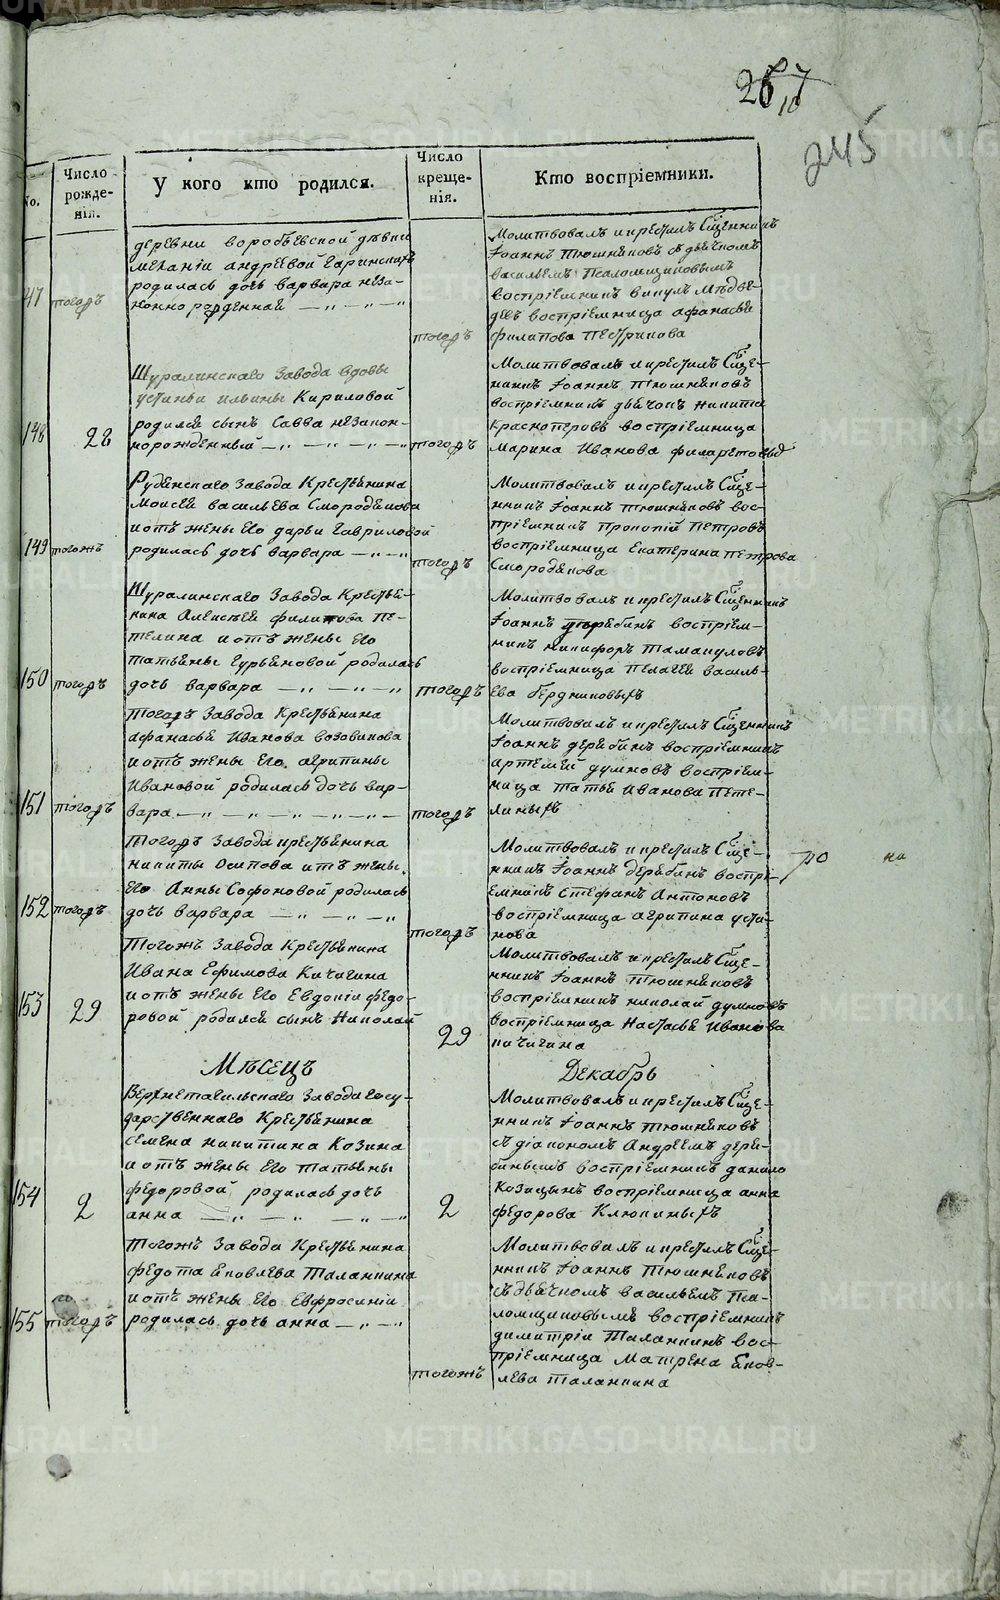 267
10
245
No.
Число рожде-
нія.
У кого кто родился.
Число
креще-
нія.
Кто воспріемники.
деревни воробьевской девки
мелании андреевой Гаринских
родилась дочь варвара неза-
конно рожденная
147 тогожъ
тогожъ
Молитвовалъ и крестилъ Сщенникъ
Іоаннъ Тюшняковъ съ дьячкомъ
васильемъ Псаломщиковымъ
воспріемникъ викулъ Медве-
девъ воспріемница афанасья
филипова Пестрикова
Шуралинскаго Завода вдовы
устиньи ильины Кириловой
родился сынъ Савва незакон-
норожденный
148 28
тогожъ
Молитвовалъ и крестилъ Сще-
нникъ Іоаннъ Тюшняковъ
воспріемникъ дьячокъ никита
Красноперовъ воспріемница
Марина Иванова филаретовыхъ
Рудянскаго Завода Крестьянина
Моисея васильева Смородякова
и отъ жены Его дарьи Гавриловой
родилась дочь варвара
149 тогожъ
тогожъ
Молитвовалъ и крестилъ Сще-
нникъ Іоаннъ Тюшняковъ вос-
пріемникъ прокопій Петровъ
воспріемница Екатерина Петрова
Смородякова
Шуралинскаго Завода Крестья-
нина Алексея филипова Пе-
телина и отъ жены Его
татьяны Гурьяновой родилась
дочь варвара
150 тогожъ
тогожъ
Молитвовалъ и крестилъ Сщенникъ
Іоаннъ дерябинъ воспріем-
никъ никифоръ Тамакуловъ
воспріемница Пелагея василь-
ева бердниковыхъ
Тогожъ Завода Крестьянина
афанасья Иванова возовикова
и отъ жены Его агрипины
Ивановой родилась дочь вар-
вара
151 тогожъ
тогожъ
Молитвовалъ и крестилъ Сщенникъ
Іоаннъ дерябинъ воспріемникъ
артемей думновъ воспріем-
ница татья Иванова Пете-
линыхъ
Тогожъ Завода крестьянина
никиты Осипова и отъ жены
Его Анны Софоновой родилась
дочь варвара
152 тогожъ
тогожъ
Молитвовалъ и крестилъ Сще-
нникъ Іоаннъ дерябинъ воспрі-
емникъ стефанъ Антоновъ
воспріемница агрипина усти-
нова
ро на
Тогожъ Завода Крестьянина
Ивана Ефимова Кичигина
и отъ жены Его Евдокіи федо-
ровой родился сынъ Николай
153 29
29
Молитвовалъ и крестилъ Сще-
нникъ Іоаннъ Тюшняковъ
воспріемникъ николай думновъ
воспріемница Настасья Иванова
кичигина
Мѣсецъ
Декабрь
Верхнетагильскаго Завода Госу-
дарственнаго Крестьянина
семена никитина Козина
и отъ жены Его татьяны
федоровой родилась дочь
анна
154 2
2
Молитвовалъ и крестилъ Сще-
нникъ Іоаннъ Тюшняковъ
съ діакономъ Андреемъ деря-
бинымъ воспріемникъ данило
Козицынъ воспріемница анна
федорова Клюкиныхъ
Тогожъ Завода Крестьянина
федота Яковлева Таланкина
и отъ жены Его Евфросиніи
родилась дочь анна
155 тогожъ
тогожъ
Молитвовалъ и крестилъ Сще-
нникъ Іоаннъ Тюшняковъ
съ дьячкомъ васильемъ Пса-
ломщиковымъ воспріемникъ
димитрій Таланкинъ вос-
пріемница Матрена Яков-
лева Таланкина
METRIKI.GASO-URAL.RU